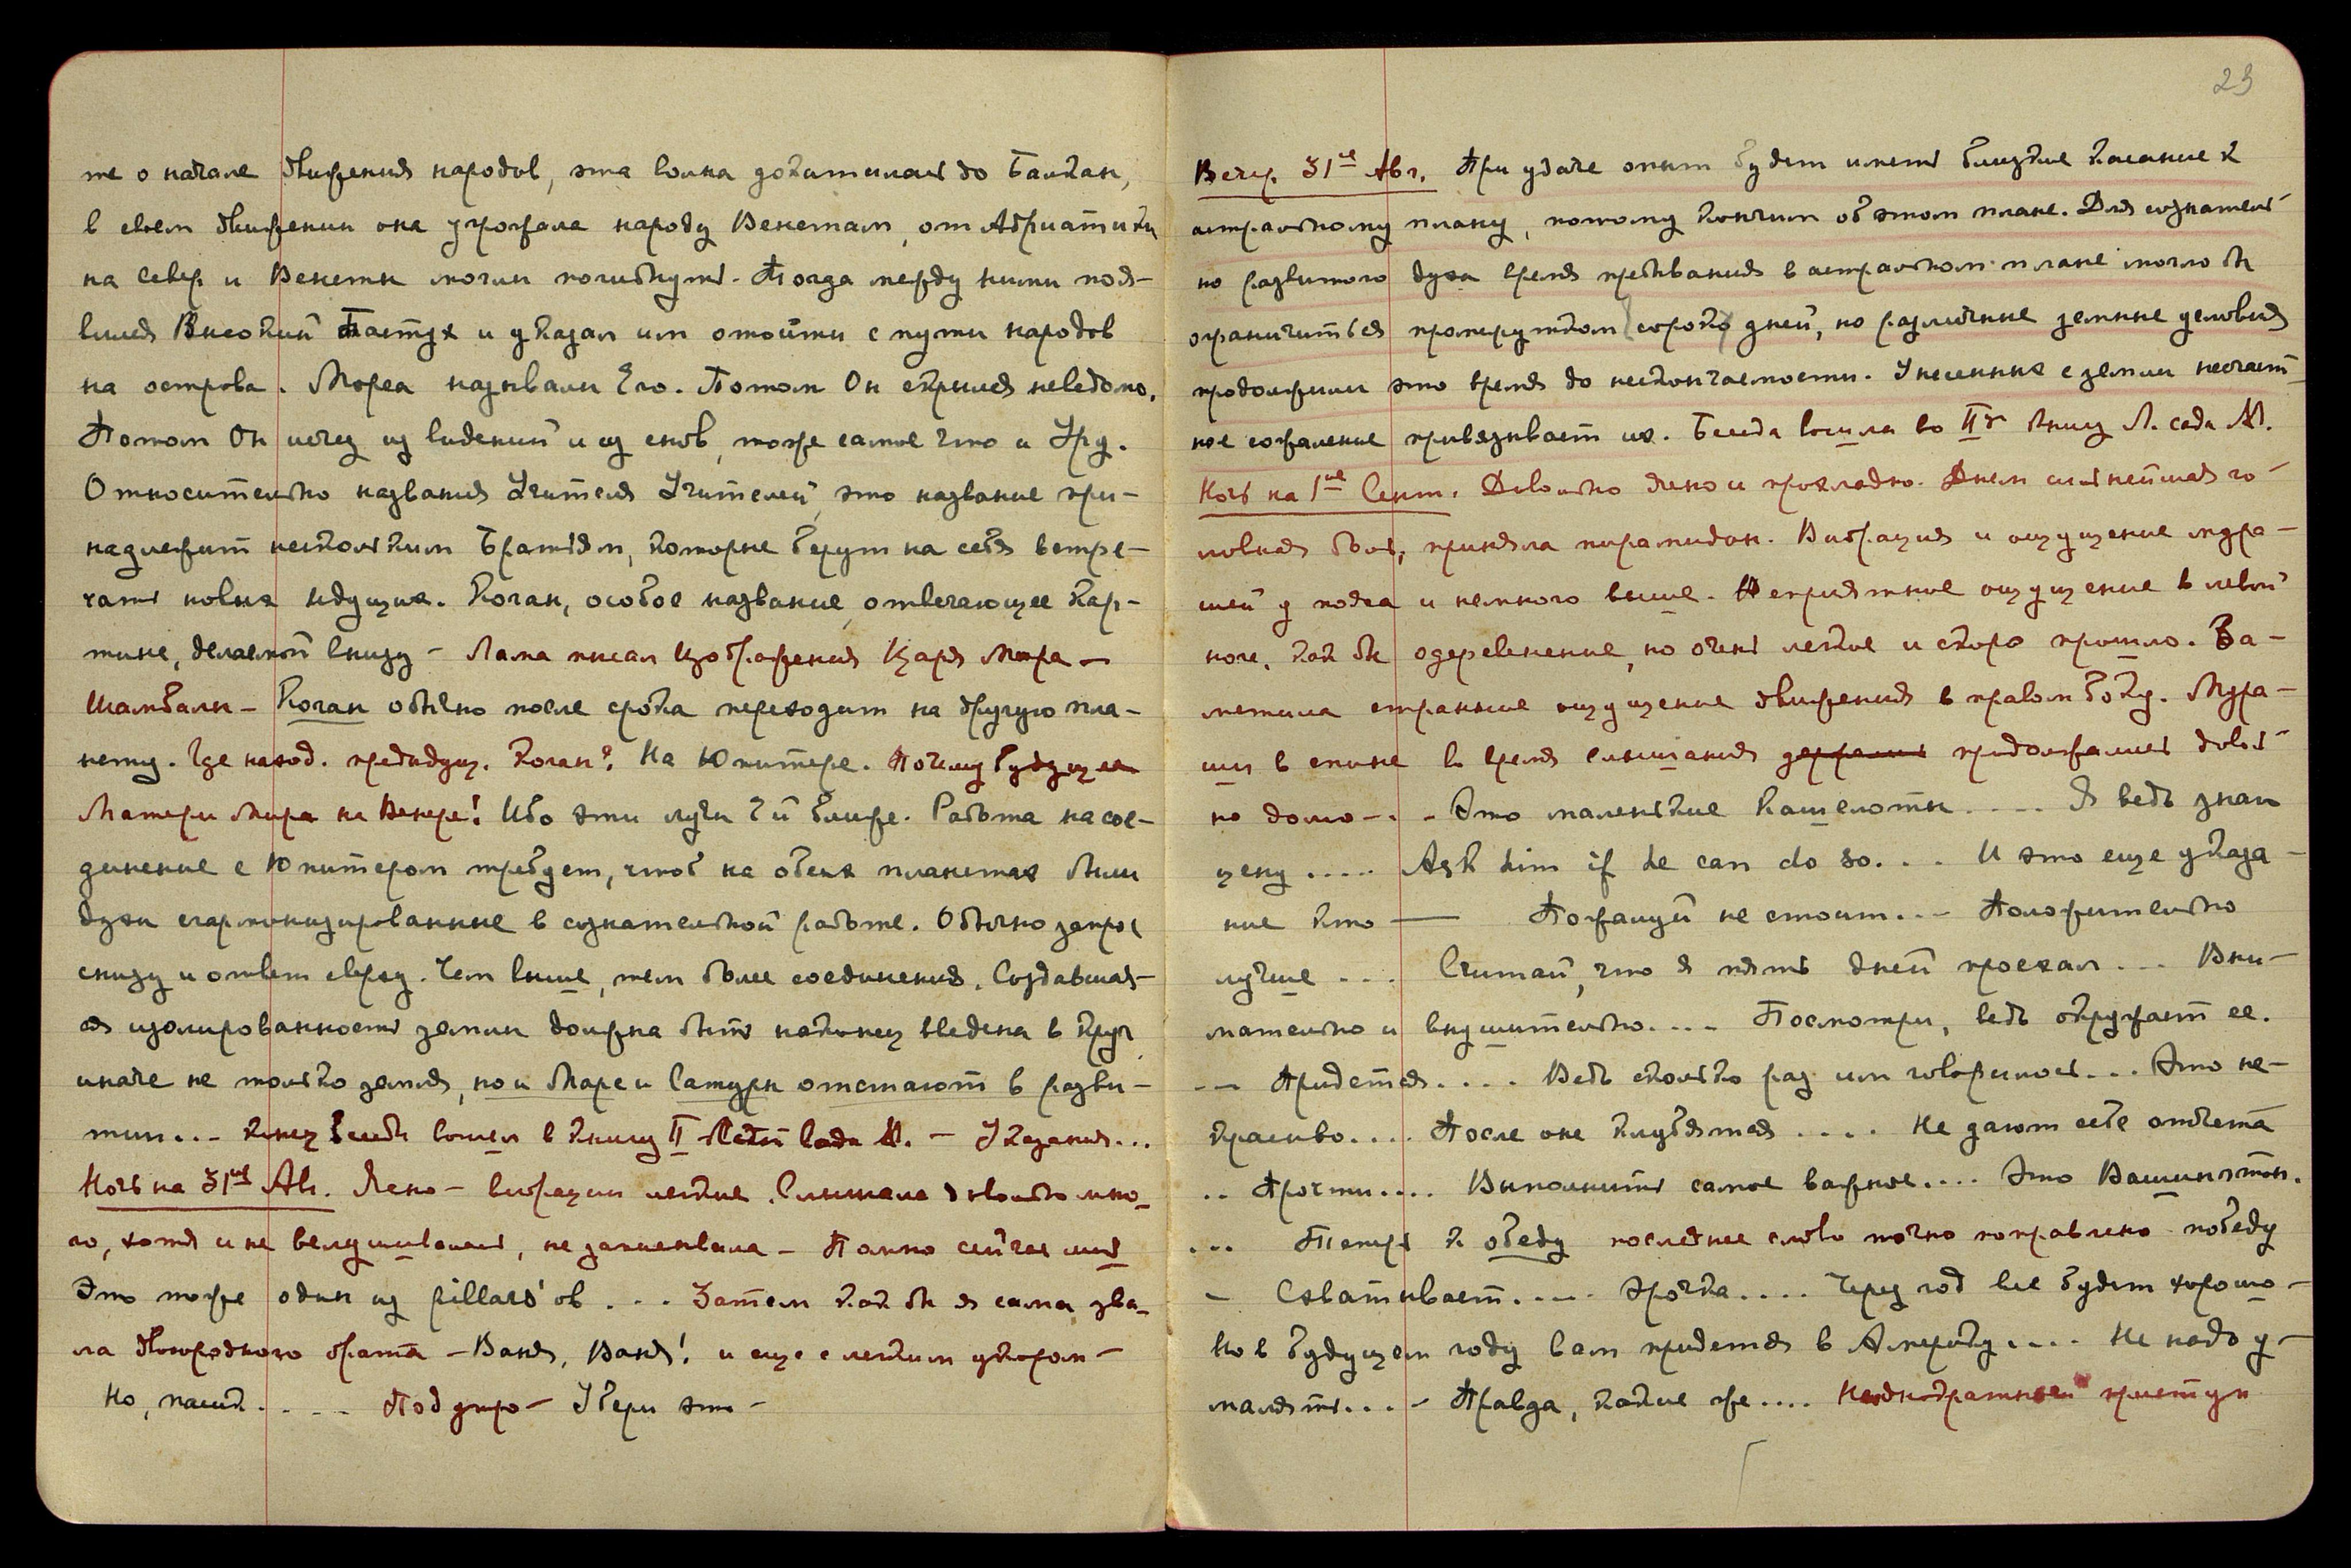 те о начале движения народов, эта волна докатилась до Балкан,
в своем движении она угрожала народу Венетам, от Адриатики
на север и Венеты могли погибнуть. Тогда между ними поя-
вился Высокий Пастух и указал им отойти с пути народов
на острова. Мореа называли Его. Потом Он скрылся неведомо.
Потом Он исчез из видений и из снов, тоже самое что и Уру.
Относительно названия Учителя Учителей, это название при-
надлежит нескольким Братьям, которые берут на себя встре-
чать новых идущих. Коган, особое название, отвечающее кар-
тине, делаемой внизу – Лама писал изображения Царя Мира –
Шамбалы – Коган обычно после срока переходит на другую пла-
нету. Где наход. предыдущ. Коган? На Юпитере. Почему будущее
Матери Мира на Венере! Ибо эти лучи Ей ближе. Работа на сое-
динение с Юпитером требует, чтоб на обеих планетах были
духи сгармонизированные в сознательной работе. Обычно запрос
снизу и ответ сверху. Чем выше, тем более соединения. Создавшая-
ся изолированность земли должна быть наконец введена в круг,
иначе не только земля, но и Марс и Сатурн отстают в разви-
тии... Конец беседы вошел в книгу II Листы Сада М. – Указания...
Ночь на 31ое Авг. Ясно – вибрации легкие. Слышала довольно мно-
го, хотя и не вслушивалась, не записывала – Помню сейчас лишь
Это тоже один из pillars'ов . . . Затем как бы я сама зва-
ла двоюродного брата – Ваня, Ваня! и еще с легким укором –
Но, . . . . – Под утро – Убери это –
23
Веч. 31ое Авг. При удаче опыт будет иметь близкое касание к
астральному плану, потому кончим об этом плане. Для сознатель-
но развитого духа время пребывания в астральном плане могло бы
ограничиться промежутком (сорока) дней, но различные земные условия
продолжили это время до нескончаемости. Унесенных с земли несчаст-
ное сожаление привязывает их. Беседа вошла во IIю книгу Л. сада М.
Ночь на 1ое Сент. Довольно ясно и прохладно. Днем сильнейшая го-
ловная боль, приняла пирамидон. Вибрация и ощущение мура-
шей у пояса и немного выше. Неприятное ощущение в левой
ноге, как бы одеревенение, но очень легкое и скоро прошло. За-
метила странное ощущение движения в правом боку. Мура-
ши в спине во время слышания держались продолжались доволь-
но долго – . – Это маленькие кашелоты . . . . Я ведь знаю
цену ..... Ask him if he can do so. . . . И это еще указа-
ние кто –– Пожалуй не стоит... – Положительно
лучше . . . Считай, что я пять дней проехал . . . Вни-
мательно и внушительно.... Посмотри, ведь окружает ее.
... Придется.... Ведь сколько раз им говорилось... Это не-
красиво.... После оне клубятся .... Не дают себе отчета
.. Прочти.... Выполнить самое важное.... Это Вашингтон.
... Теперь к обеду последнее слово точно поправлено победу
– Схватывает.... Эрочка.... Через год все будет хорошо –
Но в будущем году вам придется в Америку.... Не надо у-
малять... – Правда, какие же.... Неоднократный приступ